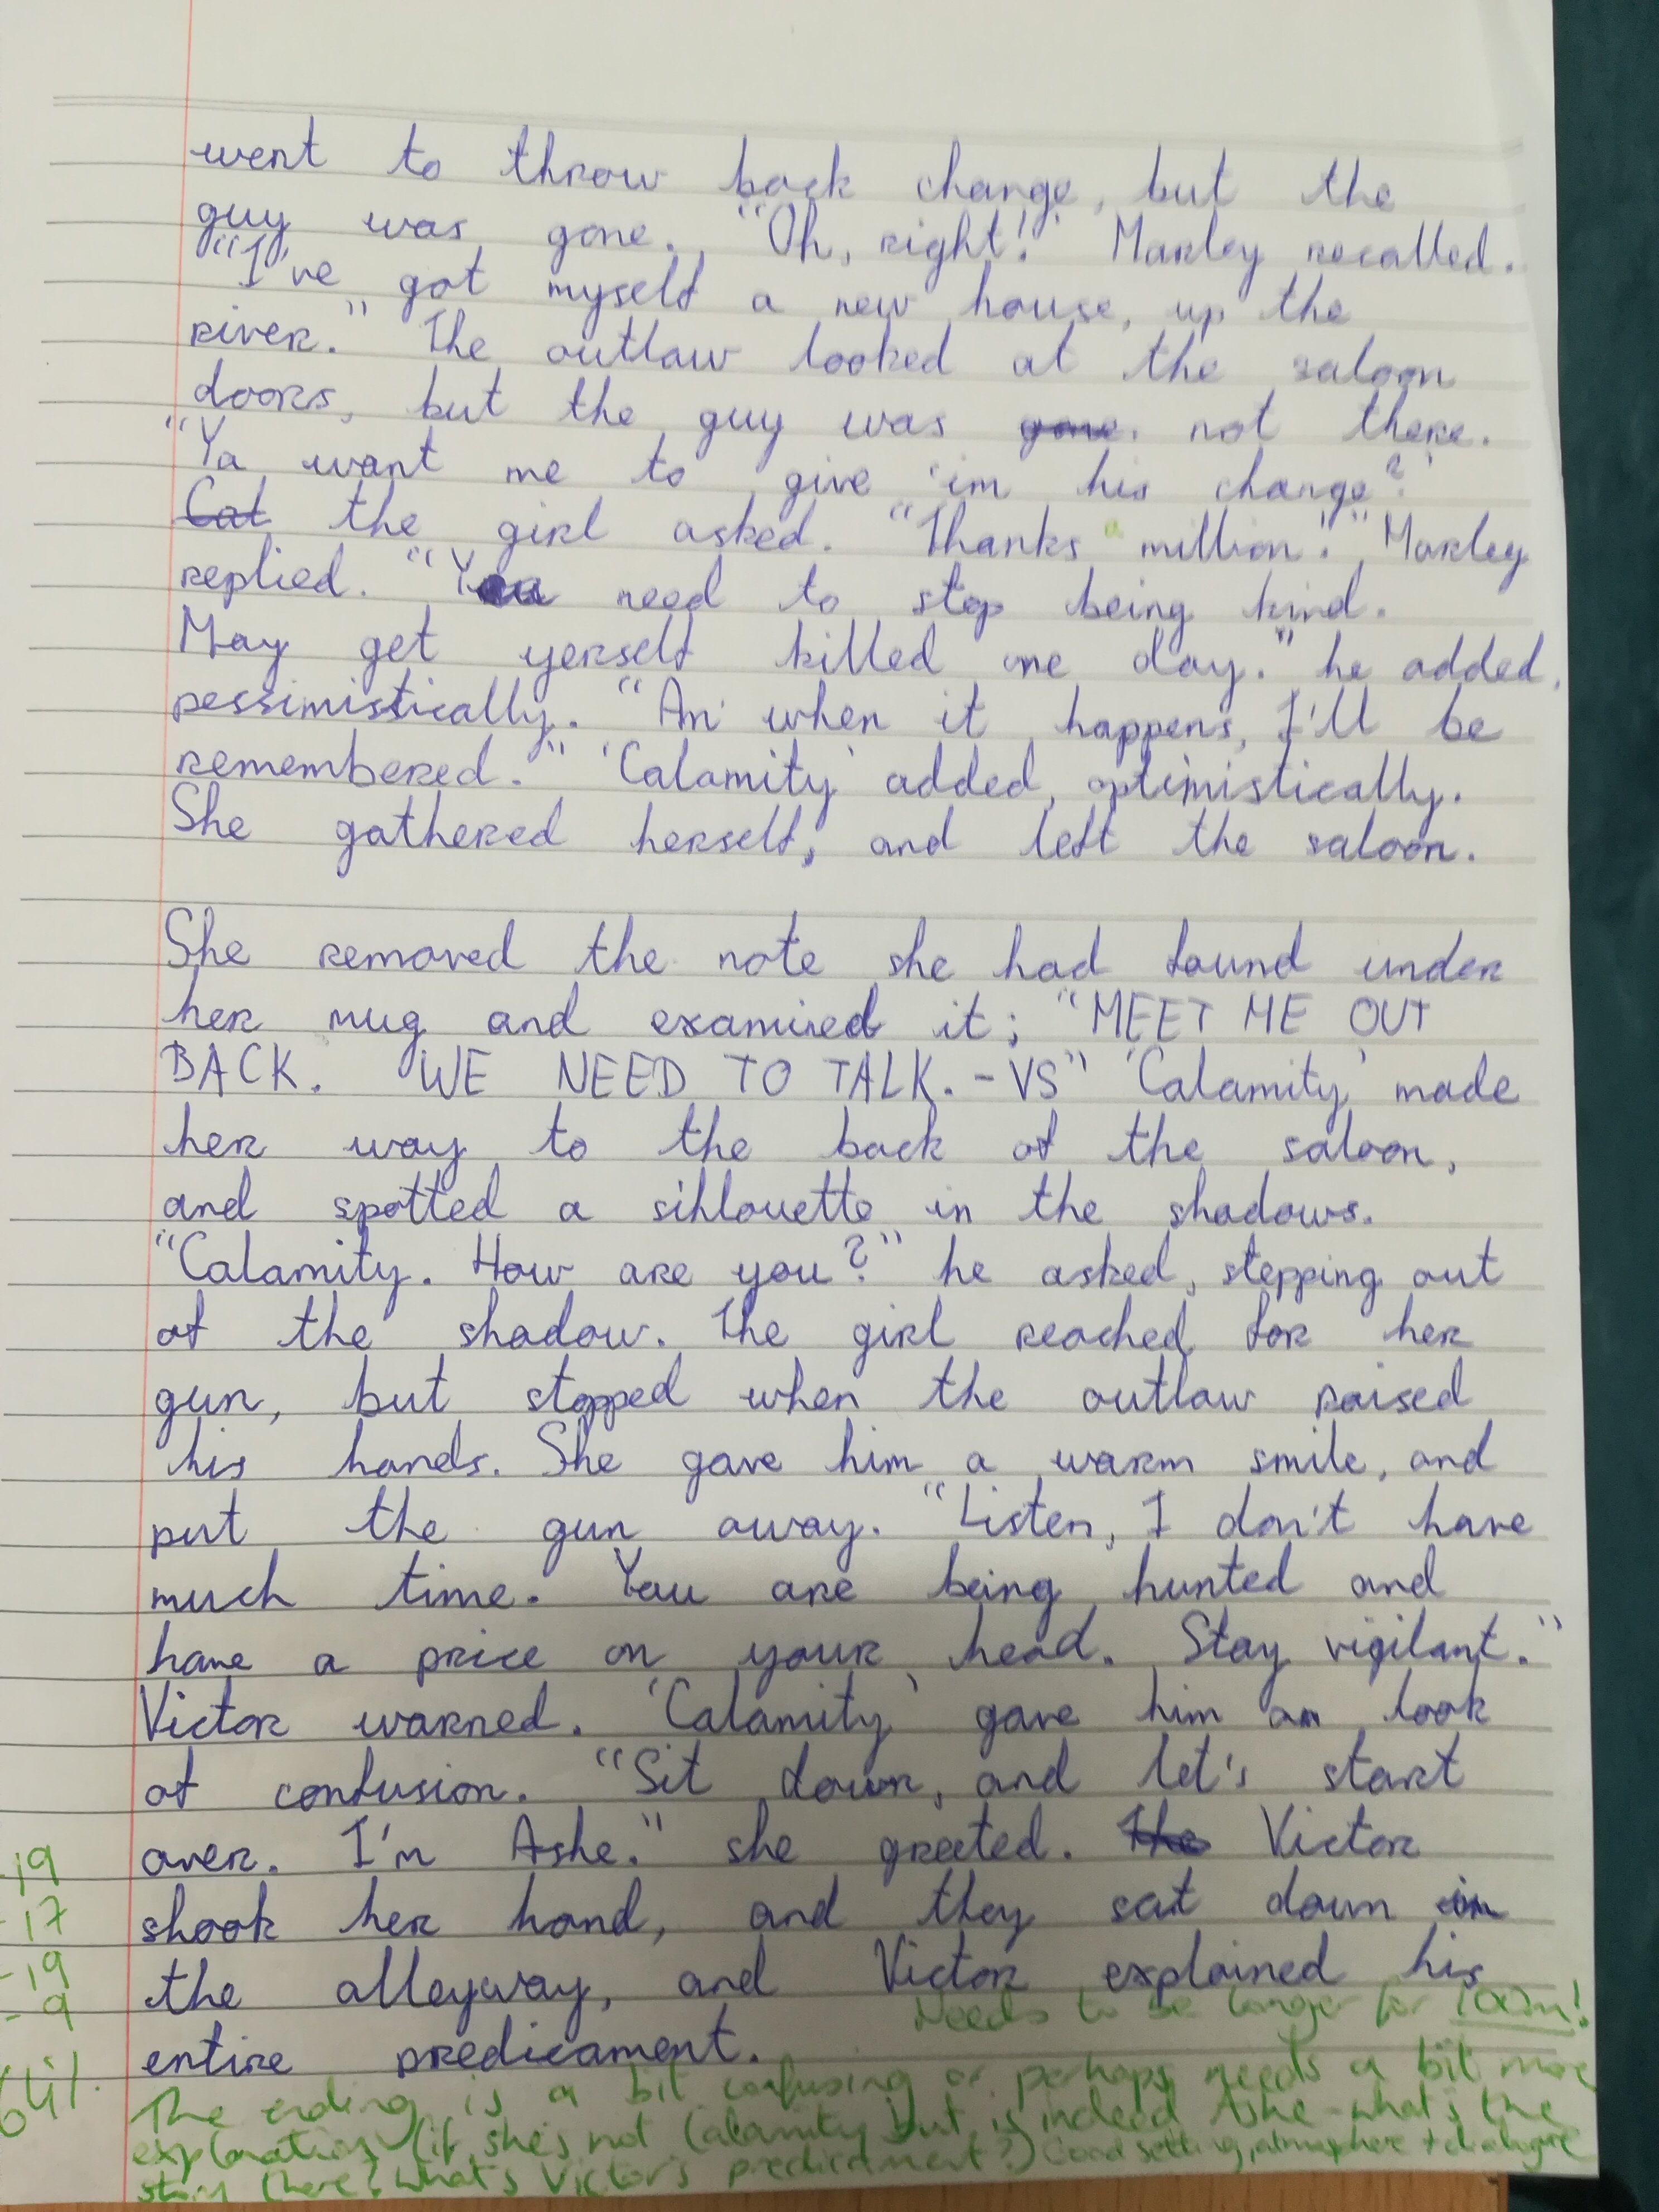 went to throw back change, but the
guy was gone. "Oh, right!" Marley recalled.
"I've got myself a new house, up the
river." The outlaw looked at the saloon
doors, but the guy was gone. not there.
"Ya want me to give 'im his change?"
Cat the girl asked. "Thanks a million!" Marley
replied. "Ya need to stop being kind.
May get yerself killed one day." he added,
pessimistically. "An' when it happens, I'll be
remembered." 'Calamity' added, optimistically.
She gathered herself, and left the saloon.
She removed the note she had found under
her mug and examined it; "MEET ME OUT
BACK. WE NEED TO TALK. - VS" 'Calamity' made
her way to the back of the saloon,
and spotted a sihlouette in the shadows.
"Calamity. How are you?" he asked, stepping out
of the shadow. The girl reached for her
gun, but stopped when the outlaw raised
his hands. She gave him a warm smile, and
put the gun away. "Listen, I don't have
much time. You are being hunted and
have a price on your head. Stay vigilant."
Victor warned. 'Calamity' gave him a look
of confusion. "Sit down, and let's start
over. I'm Ashe." she greeted. The Victor
shook her hand, and they sat down in
the alleyway, and Victor explained his
entire predicament.
19
17
19
9
Needs to be longer for 100m!
The ending is a bit confusing or perhaps needs a bit more
explanation (if she's not Calamity but is indeed Ashe - what's the
story there? What's Victor's predicament?) Good setting, atmosphere + dialogue